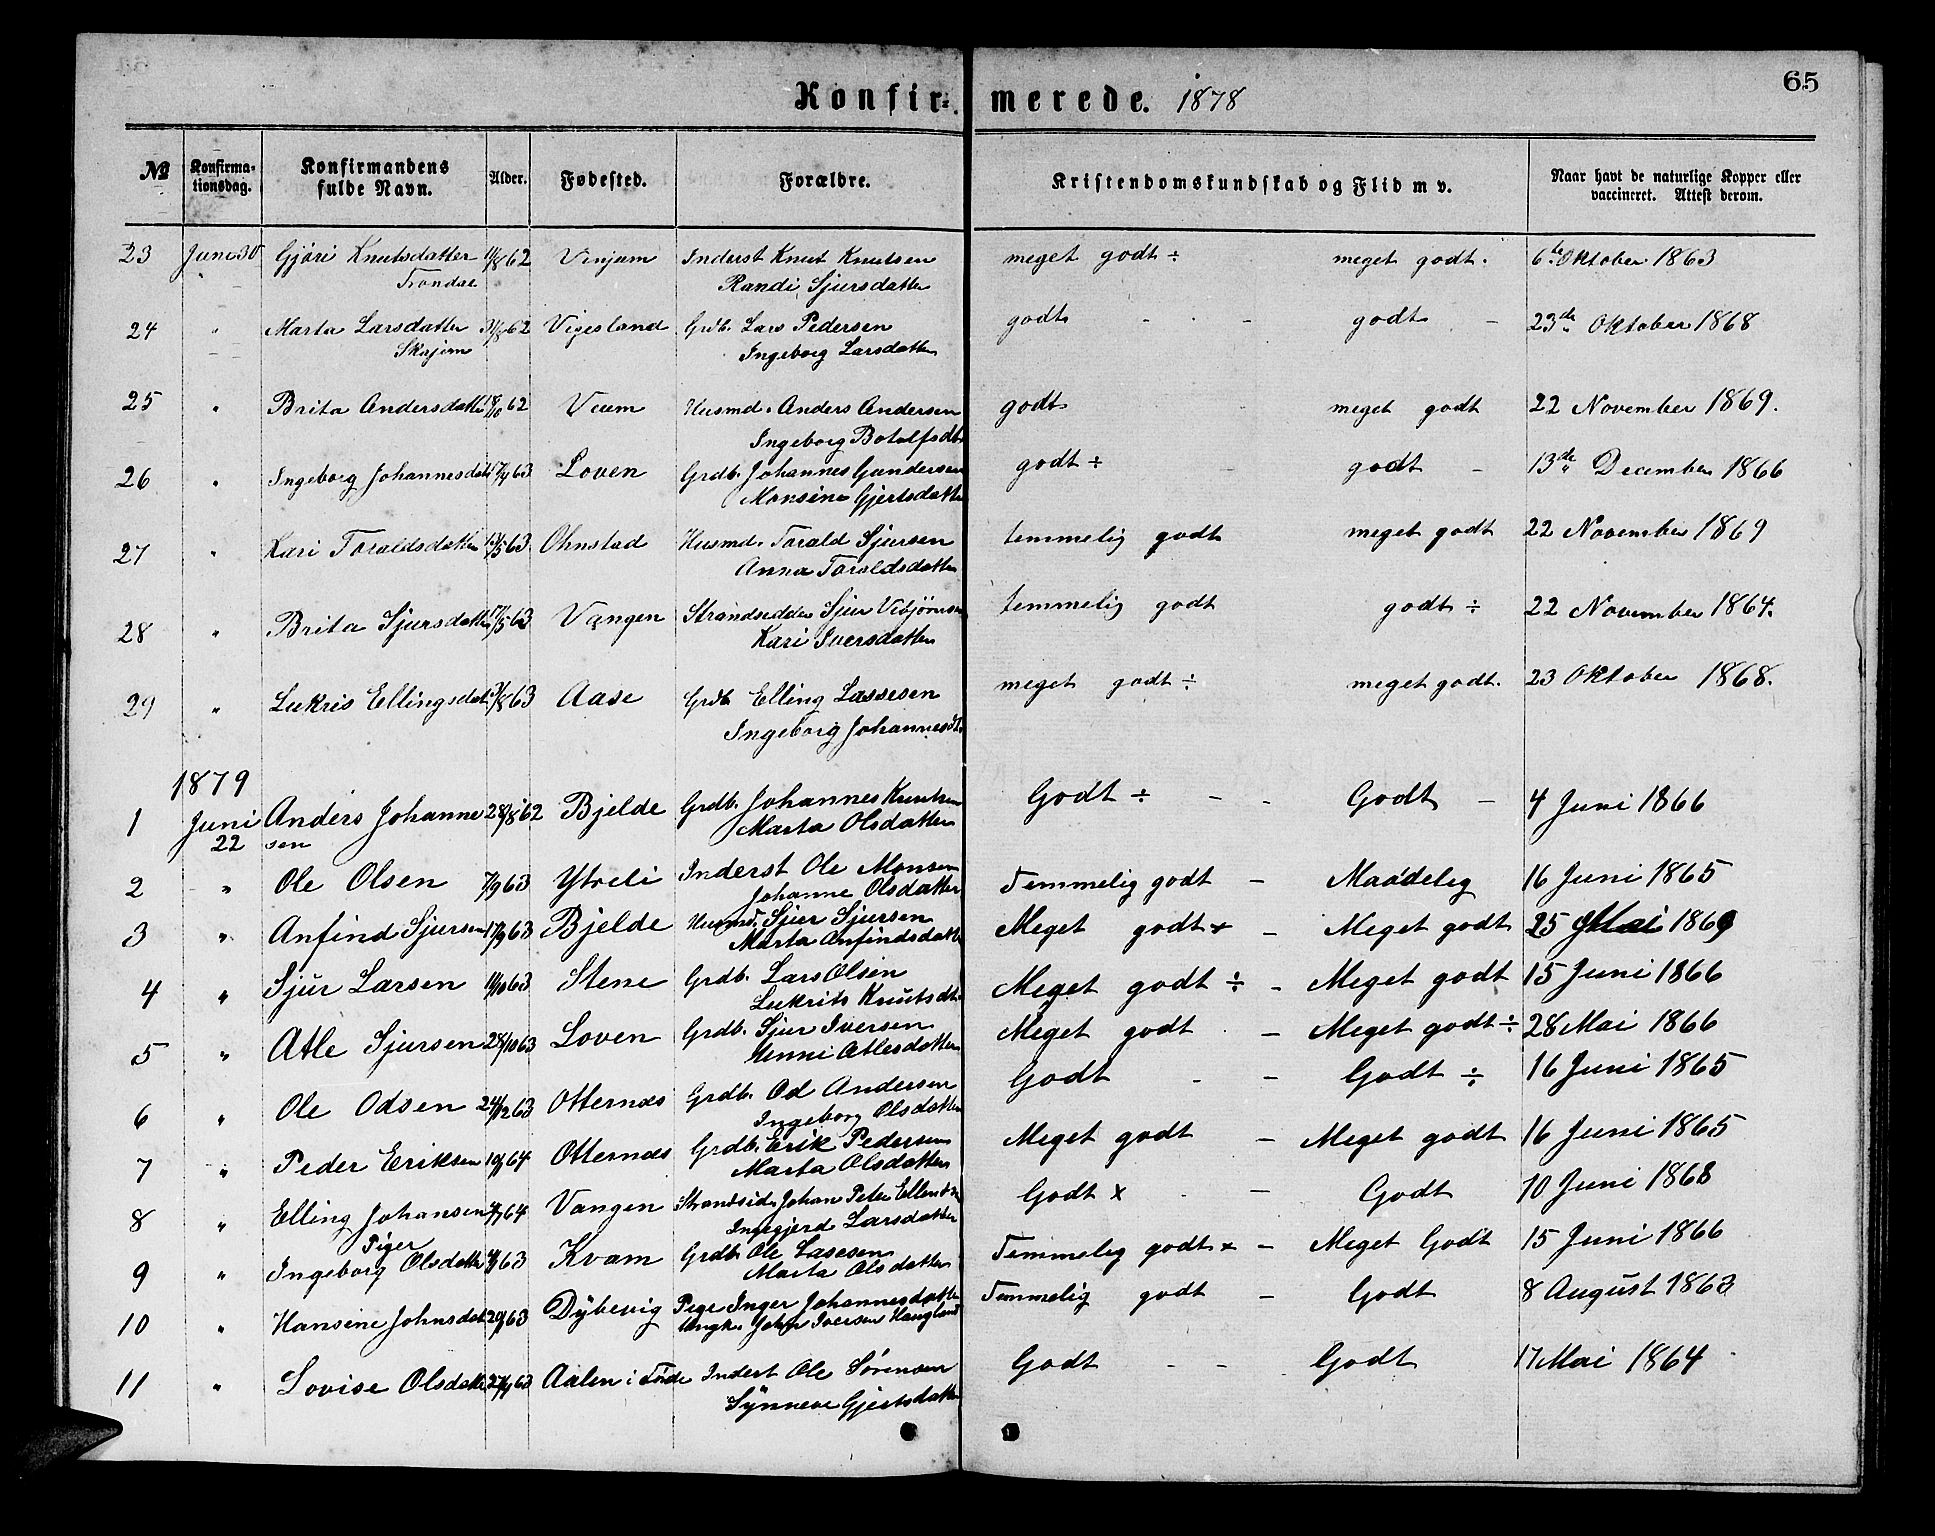 65
Konfir= merede. 1878
№ Konfirma= tionsdag. Konfirmandens fulde Navn. Alder. Fødested. Forældre. Kristendomskundskab og Flid m v. Naar havt de naturlige Kopper eller vaccineret. Attest derom.
23 Juni 30 Gjøri Knutsdatter 11/8 62 Vinjum Inderst Knut Knutsen meget godt ÷ meget godt. 6te Oktober 1863
" Trondal Randi Sjursdatter
24 " Marta Larsdatter 62 Vigesland Grdb. Lars Pedersen godt - - godt - 23de Oktober 1868
Skajem Ingeborg Larsdatter
25 " Brita Andersdatter 18/10 62 Veum Husmd. Anders Andersen godt meget godt 22 November 1869.
Ingeborg Botolfsdtr
26 " Ingeborg Johannesdatt 17/4 63 Loven Grdb. Johannes Gundersen godt ÷ - godt - 13de December 1866
Monsine Gjertsdatter
27 " Kari Toraldsdatter 13/5 63 Ohnstad Husmd. Torald Sjursen temmelig godt meget godt 22 November 1869
Anna Toraldsdatter
28 " Brita Sjursdatter 17/5 63 Vangen Strandsidder Sjur Vibjørnsen temmelig godt godt ÷ 22 November 1864.
Kari Iversdatter
29 " Lukris Ellingsdatt 3/8 63 Aase Grdb Elling Lassesen meget godt ÷ meget godt. 23 Oktober 1868.
Ingeborg Johannesdtr
1879
1 Juni Anders Johanne 28/8 62 Bjelde Grdb. Johannes Knutsen Godt ÷ - - Godt - 4 Juni 1866
22 sen Marta Olsdatter
2 " Ole Olsen 7/9 63 Ytreli Inderst Ole Monsen Temmelig godt - Maadelig 16 Juni 1865
Johanne Olsdatter
3 " Anfind Sjursen 17/9 63 Bjelde Husmd. Sjur Sjursen Meget godt × - Meget godt 25 Mai 1869
Marta Anfindsdatt
4 " Sjur Larsen 11/10 63 Stene Grdb. Lars Olsen Meget godt ÷ - Meget godt 15 Juni 1866
Lukrits Knutsdt.
5 " Atle Sjursen 28/10 63 Loven Grdb. Sjur Iversen Meget godt - Meget godt ÷ 28 Mai 1866
Henni Atlesdatter
6 " Ole Odsen 24/12 63 Otternæs Grdb. Od Andersen Godt - - Godt ÷ 16 Juni 1865
Ingeborg Olsdatter
7 " Peder Eriksen 64 Otternæs Grdb. Erik Pedersen Meget godt - Meget godt 16 Juni 1865
Marta Olsdatter
8 " Elling Johansen 4/7 64 Vangen Strandsid. Johan Peter Ellendsn Godt × - Godt 10 Juni 1868
Ingegjerd Larsdatter
Piger
9 " Ingeborg Olsdatter 63 Kvam Grdb. Ole Lasesen Temmelig godt × - Meget Godt 15 Juni 1866
Marta Olsdatter
10 " Hansine Johnsdat 63 Dybevig Pige Inger Johannesdatter Temmelig godt - Godt 8 August 1863
Ungk. John Iversen Haugland
11 " Lovise Olsdatter 63 Aalen i Førde Inderst Ole Sørensen Godt - - Godt 17 Mai 1864
Synneve Gjertsdatter